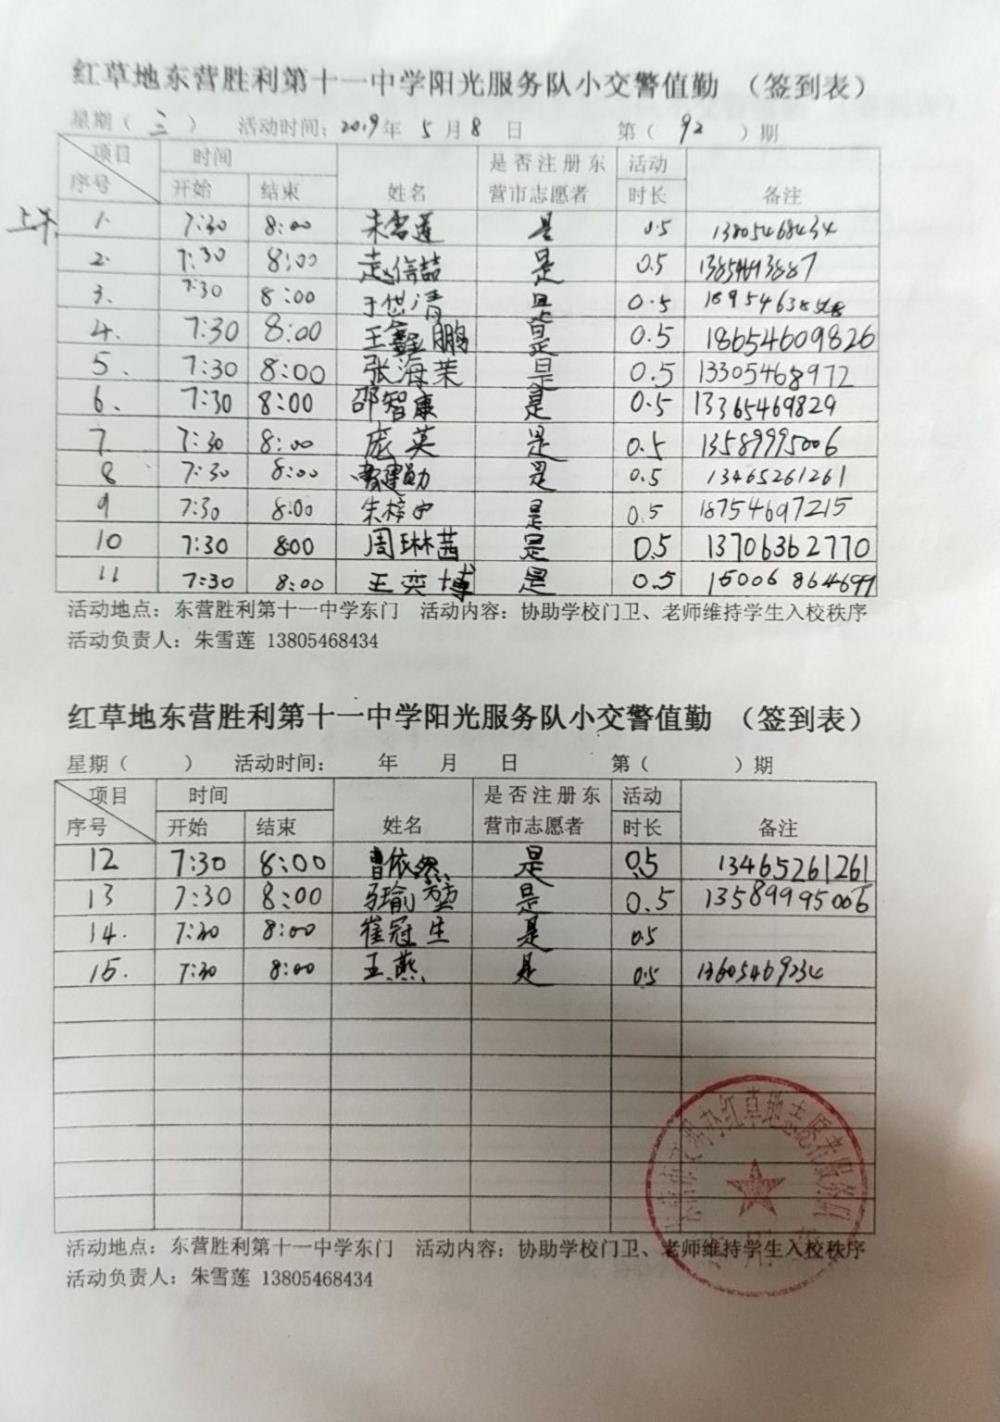 红草地东营胜利第十一中学阳光服务队小交警值勤 （签到表）
星期（ 三 ） 活动时间：2019年 5 月 8 日 第（ 92 ）期
项目 时间 姓名 是否注册东营市志愿者 活动时长 备注
序号 开始 结束
上午 1. 7:30 8:00 朱雪莲 是 0.5 13805468434
2. 7:30 8:00 赵信喆 是 0.5
3. 7:30 8:00 于世清 是 0.5
4. 7:30 8:00 王鑫鹏 是 0.5 18654609826
5. 7:30 8:00 张海荣 是 0.5 13305468972
6. 7:30 8:00 邵智康 是 0.5 13365469829
7 7:30 8:00 庞英 是 0.5 13589995006
8 7:30 8:00 是 0.5 13465261261
9 7:30 8:00 朱梓 是 0.5 18754697215
10 7:30 8:00 周琳茜 是 0.5 13706362770
11 7:30 8:00 王奕博 是 0.5 15006864699
活动地点：东营胜利第十一中学东门 活动内容：协助学校门卫、老师维持学生入校秩序
活动负责人：朱雪莲 13805468434
红草地东营胜利第十一中学阳光服务队小交警值勤 （签到表）
星期（ ） 活动时间： 年 月 日 第（ ）期
项目 时间 姓名 是否注册东营市志愿者 活动时长 备注
序号 开始 结束
12 7:30 8:00 曹依然 是 0.5 13465261261
13 7:30 8:00 是 0.5 13589995006
14. 7:30 8:00 崔冠生 是 0.5
15. 7:30 8:00 王燕 是 0.5 13605469234
活动地点：东营胜利第十一中学东门 活动内容：协助学校门卫、老师维持学生入校秩序
活动负责人：朱雪莲 13805468434
红草地志愿者服务团